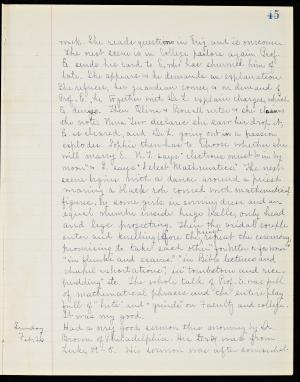 45
note. She reads question in Trig and is overcome.
The next scene is in College parlors again. Prof.
E. sends his card to S, who has shunned him of
late. She appears & he demands an explanation.
She refuses, her guardian comes, on demand of
Prof. E., he together with Dr L. explain charges, which
E. denies. Then Elena & Terrell write & she
the note. Nina Lux declares she saw her drop it,
E. is cleared, and Dr L. going out in a passion
explodes. Sophie then has to choose whether she
will marry E. N. L. says "electives must be in by
noon." S. says "I elect Mathematics." The next
scene begins with a dance around a priest
wearing a black robe covered with mathematical
figures, by some girls in evening dress and an
equal number inside huge collars, only head
and legs projecting. Then the bridal couple
enter and kneeling before the priest repeat the ceremony,
promising to take each other for better or for worse
"in flunks and exams," "in Bible lectures and
chapel exhortations", in turbetone and rice
pudding" etc. The whole talk of Prof. E. was full
of mathematical phrases and the entire play
full of "hits" and "grinds" on Faculty and college.
It was very good.
Sunday
Feb. 26
Had a very good sermon this morning by Dr
Brown of Philadelphia. His text was from
Luke His sermon was after somewhat